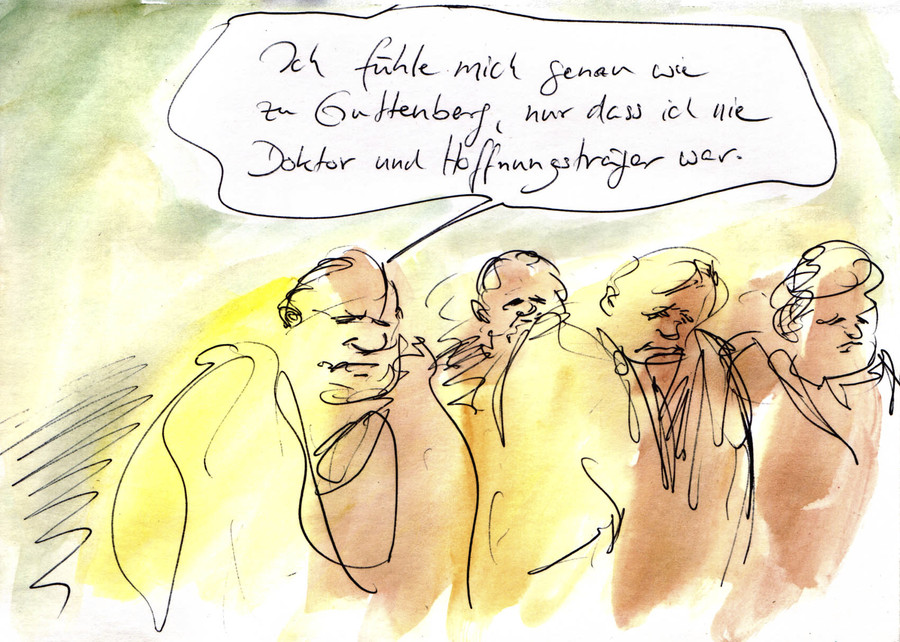 Ich fühle mich genau wie
zu Guttenberg, nur dass ich nie
Doktor und Hoffnungsträger war.